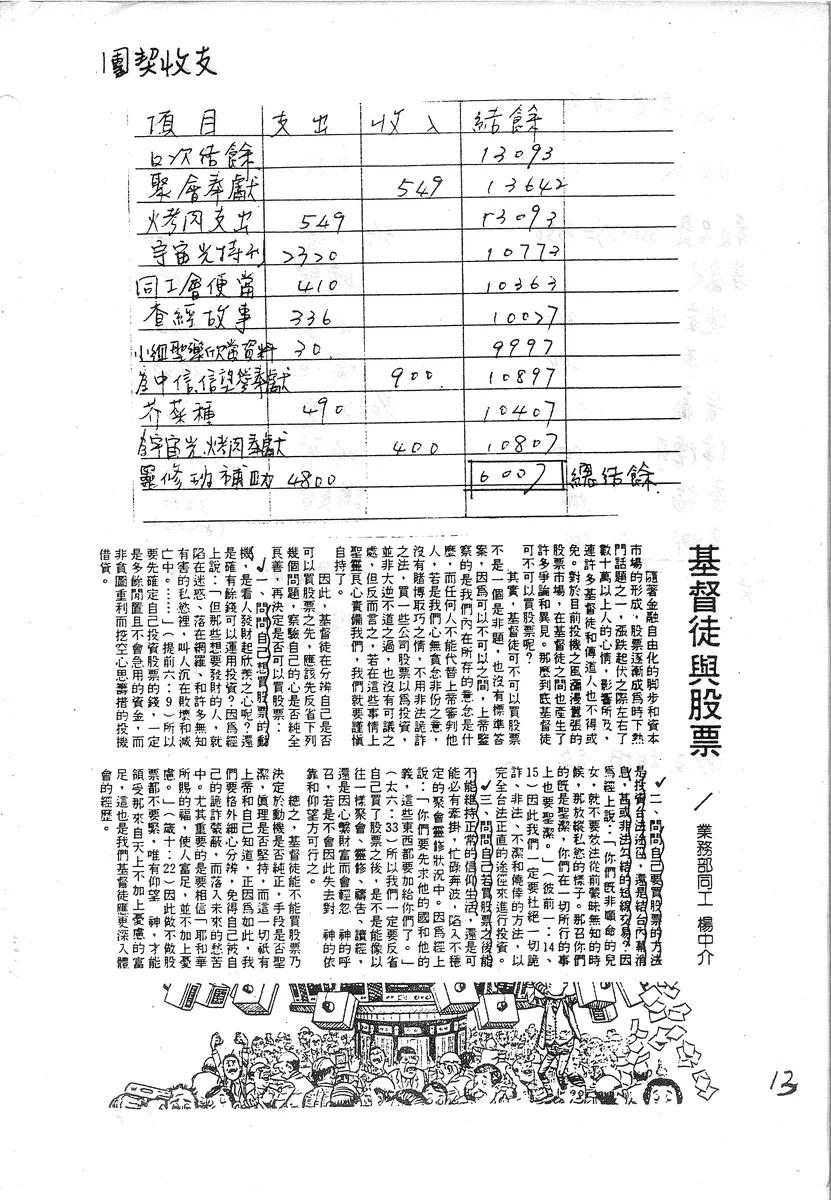 團契收支
項目 支出 收入 結餘
口次結餘 13093
聚會奉獻 549 13642
烤肉支出 549 13093
宇宙光特刊 2320 10773
同工會便當 410 10363
查經故事 336 10027
小組聖樂欣賞資料 30 9997
中信.信望愛奉獻 900 10897
芥菜種 490 10407
宇宙光.烤肉奉獻 400 10807
靈修班補助 4800 6007 總結餘
基督徒與股票
/業務部同工 楊中介
隨著金融自由化的脚步和資本
市場的形成,股票逐漸成爲時下熱
門話題之一,漲跌起伏之際左右了
數十萬以上人的心情,影響所及,
連許多基督徒和傳道人也不得或
免。對於目前投機之風瀰漫囂張的
股票市場,在基督徒之間也產生了
許多爭論和異見。那麼到底基督徒
可不可以買股票呢?
其實,基督徒可不可以買股票
不是一個是非題,也沒有標準答
案,因爲可以不可以之間,上帝鑒
察的是我們內在所存的意念是什
麼,而任何人不能代替上帝審判他
人,若是我們心無貪念非份之意,
沒有賭博取巧之情,不用非法詭詐
之法,買一些公司股票以爲投資,
並非大逆不道之過,也沒有可議之
處,但反而言之,若在這些事情上
聖靈良心責備我們,我們就要謹愼
自持了。
因此,基督徒在分辨自己是否
可以買股票之先,應該先反省下列
幾個問題,察驗自己的心是否純全
良善,再決定是否可以買股票:
✓一、問問自己想買股票的動
機,是看人發財起欣羨之心呢?還
是確有餘錢可以運用投資?因爲經
上說:「但那些想要發財的人,就
陷在迷惑、落在網羅、和許多無知
有害的私慾裡,叫人沉在敗壞和滅
亡中。……」(提前六:9)所以
要先確定自己投資股票的錢,一定
是多餘閒置且不會急用的資金,而
非貪圖重利而挖空心思籌措的投機
借貸。
✓二、問問自己要買股票的方法
是投資合法途徑,還是結合內幕消
息,甚或非法勾結的短線交易?因
爲經上說:「你們旣作順命的兒
女,就不要效法從前蒙昧無知的時
候,那放縱私慾的樣子。那召你們
的旣是聖潔,你們在一切所行的事
上也要聖潔。」(彼前一:14、
15)因此我們一定要杜絕一切詭
詐、非法、不潔和僥倖的方法,以
完全合法正直的途徑來進行投資。
✓三、問問自己若買股票之後能
不能維持正常的信仰生活,還是可
能必有牽掛,忙碌奔波,陷入不穩
定的聚會靈修狀況中。因爲經上
說:「你們要先求他的國和他的
義,這些東西都要加給你們了。」
(太六:33)所以我們一定要反省
自己買了股票之後,是不是能像以
往一樣聚會、靈修、禱告、讀經,
還是因心繫財富而會輕忽 神的呼
召,若是不會因此失去對 神的依
靠和仰望方可行之。
總之,基督徒能不能買股票乃
決定於動機是否純正,手段是否聖
潔,眞理是否堅持,而這一切祇有
上帝和自己知道,正因爲如此,我
們要格外細心分辨,免得自己被自
己的詭詐蒙蔽,而落入未來的愁苦
中。尤其重要的是要相信「耶和華
所賜的福,使人富足,並不加上憂
慮。」(箴十:22)因此做不做股
票都不要緊,唯有仰望 神,才能
領受那來自天上不加上憂慮的富
足,這也是我們基督徒應更深入體
會的經歷。
13